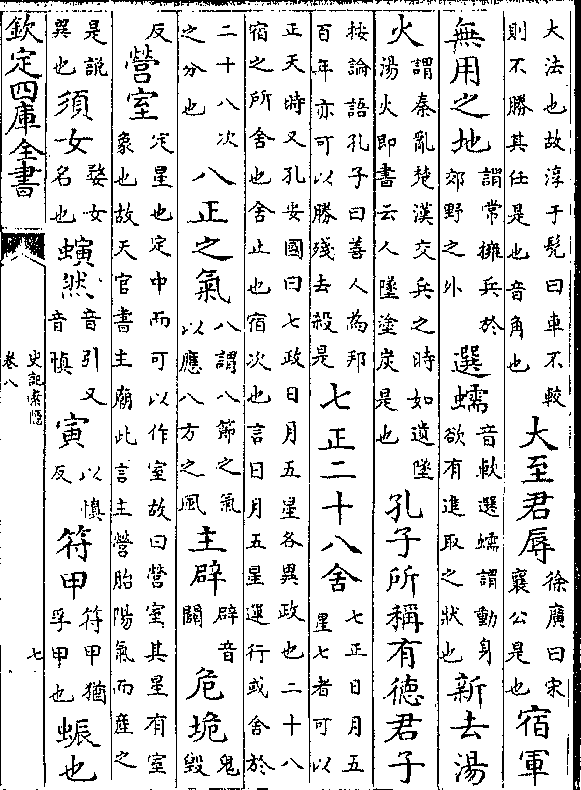 大法也故淳于髡曰車不較則不勝其任是也音角也大至君辱徐廣曰宋襄公是也宿軍
無用之地謂常擁兵於郊野之外選蠕音軟選蠕謂動身欲有進取之狀也新去湯
火謂秦亂楚漢交兵之時如遺墜湯火即書云人墜塗炭是也孔子所稱有德君子
按論語孔子曰善人為邦百年亦可以勝殘去殺是七正二十八舍七正日月五星七者可以
正天時又孔安國曰七政日月五星各異政也二十八宿之所舍也舍止也宿次也言日月五星運行或舍於
二十八次之分也八正之氣八謂八節之氣以應八方之風主辟辟音闢危垝鬼毀
反營室定星也定中而可以作室故曰營室其星有室象也故天官書主廟此言主營胎陽氣而産之
是説異也須女婺女名也螾然音引又音慎寅以慎反符甲符甲猶孚甲也蜄也
欽定四庫全書
史記索隱
卷八
七